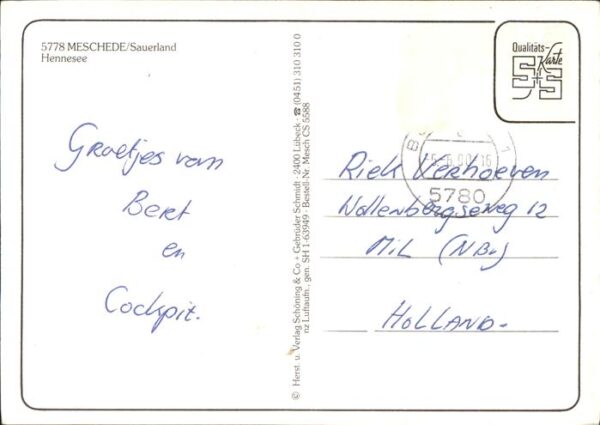 5778 MESCHEDE/Sauerland
Hennesee
Groetjes van
Bert
en
Cockpit.
© Herst. u. Verlag Schöning & Co + Gebrüder Schmidt · 2400 Lübeck · ☎ (0451) 310 310 0
SH 1-63949 · Bestell-Nr. Mesch CS 5588
nz Luftaufn., gen.
Qualitäts-
Karte
S+S
5780
Riek Verhoeven
Wollenbergseweg 12
MiL (NBr)
HOLLAND-